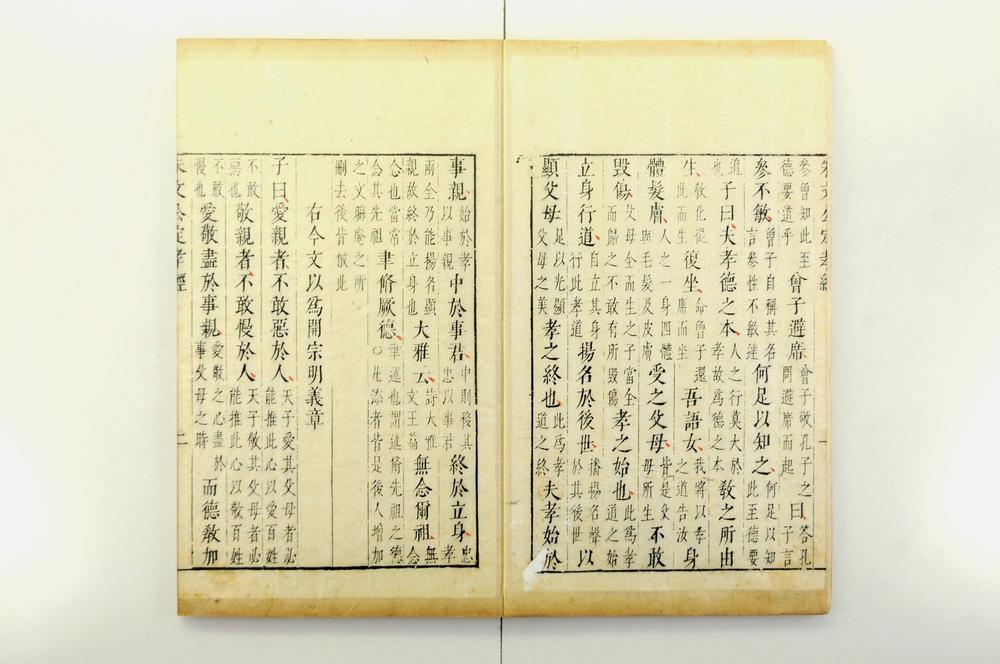 朱文公定孝經
參曾知此至德要道乎曾子避席曾子敬孔子之問避席而起曰答孔子言
參不敏曾子自稱其名言參性不敏達何足以知之何足以知此至德要
道也子曰夫孝德之本人之行莫大於孝故爲德之本教之所由
生教化從此而生復坐命曾子還席而坐吾語女我將以孝之道告汝身
體髮膚人之一身四體與毛髮及皮膚受之父母皆是父母所生不敢
毀傷父母全而生之子當全而歸之不敢有所毀傷孝之始也此爲孝道之始
立身行道自立其身行此孝道揚名於後世播揚名聲於其後世以
顯父母足以光顯父母之美孝之終也此爲孝道之終夫孝始於
事親始於孝以事親中於事君中則移其忠以事君終於立身忠孝
兩全乃能揚名顯親故終於立身也大雅云詩大雅文王篇無念爾祖無念
念也當常念其先祖聿脩厥德聿述也謂述脩先祖之德○凡添者皆是後人增加
之文晦庵之所刪去後皆倣此
右今文以爲開宗明義章
子曰愛親者不敢惡於人天子愛其父母者必能推此心以愛百姓
不敢惡也敬親者不敢慢於人天子敬其父母者必能推此心以敬百姓
不敢慢也愛敬盡於事親愛敬之心盡於事父母之時而德教加
朱文公定孝經 二